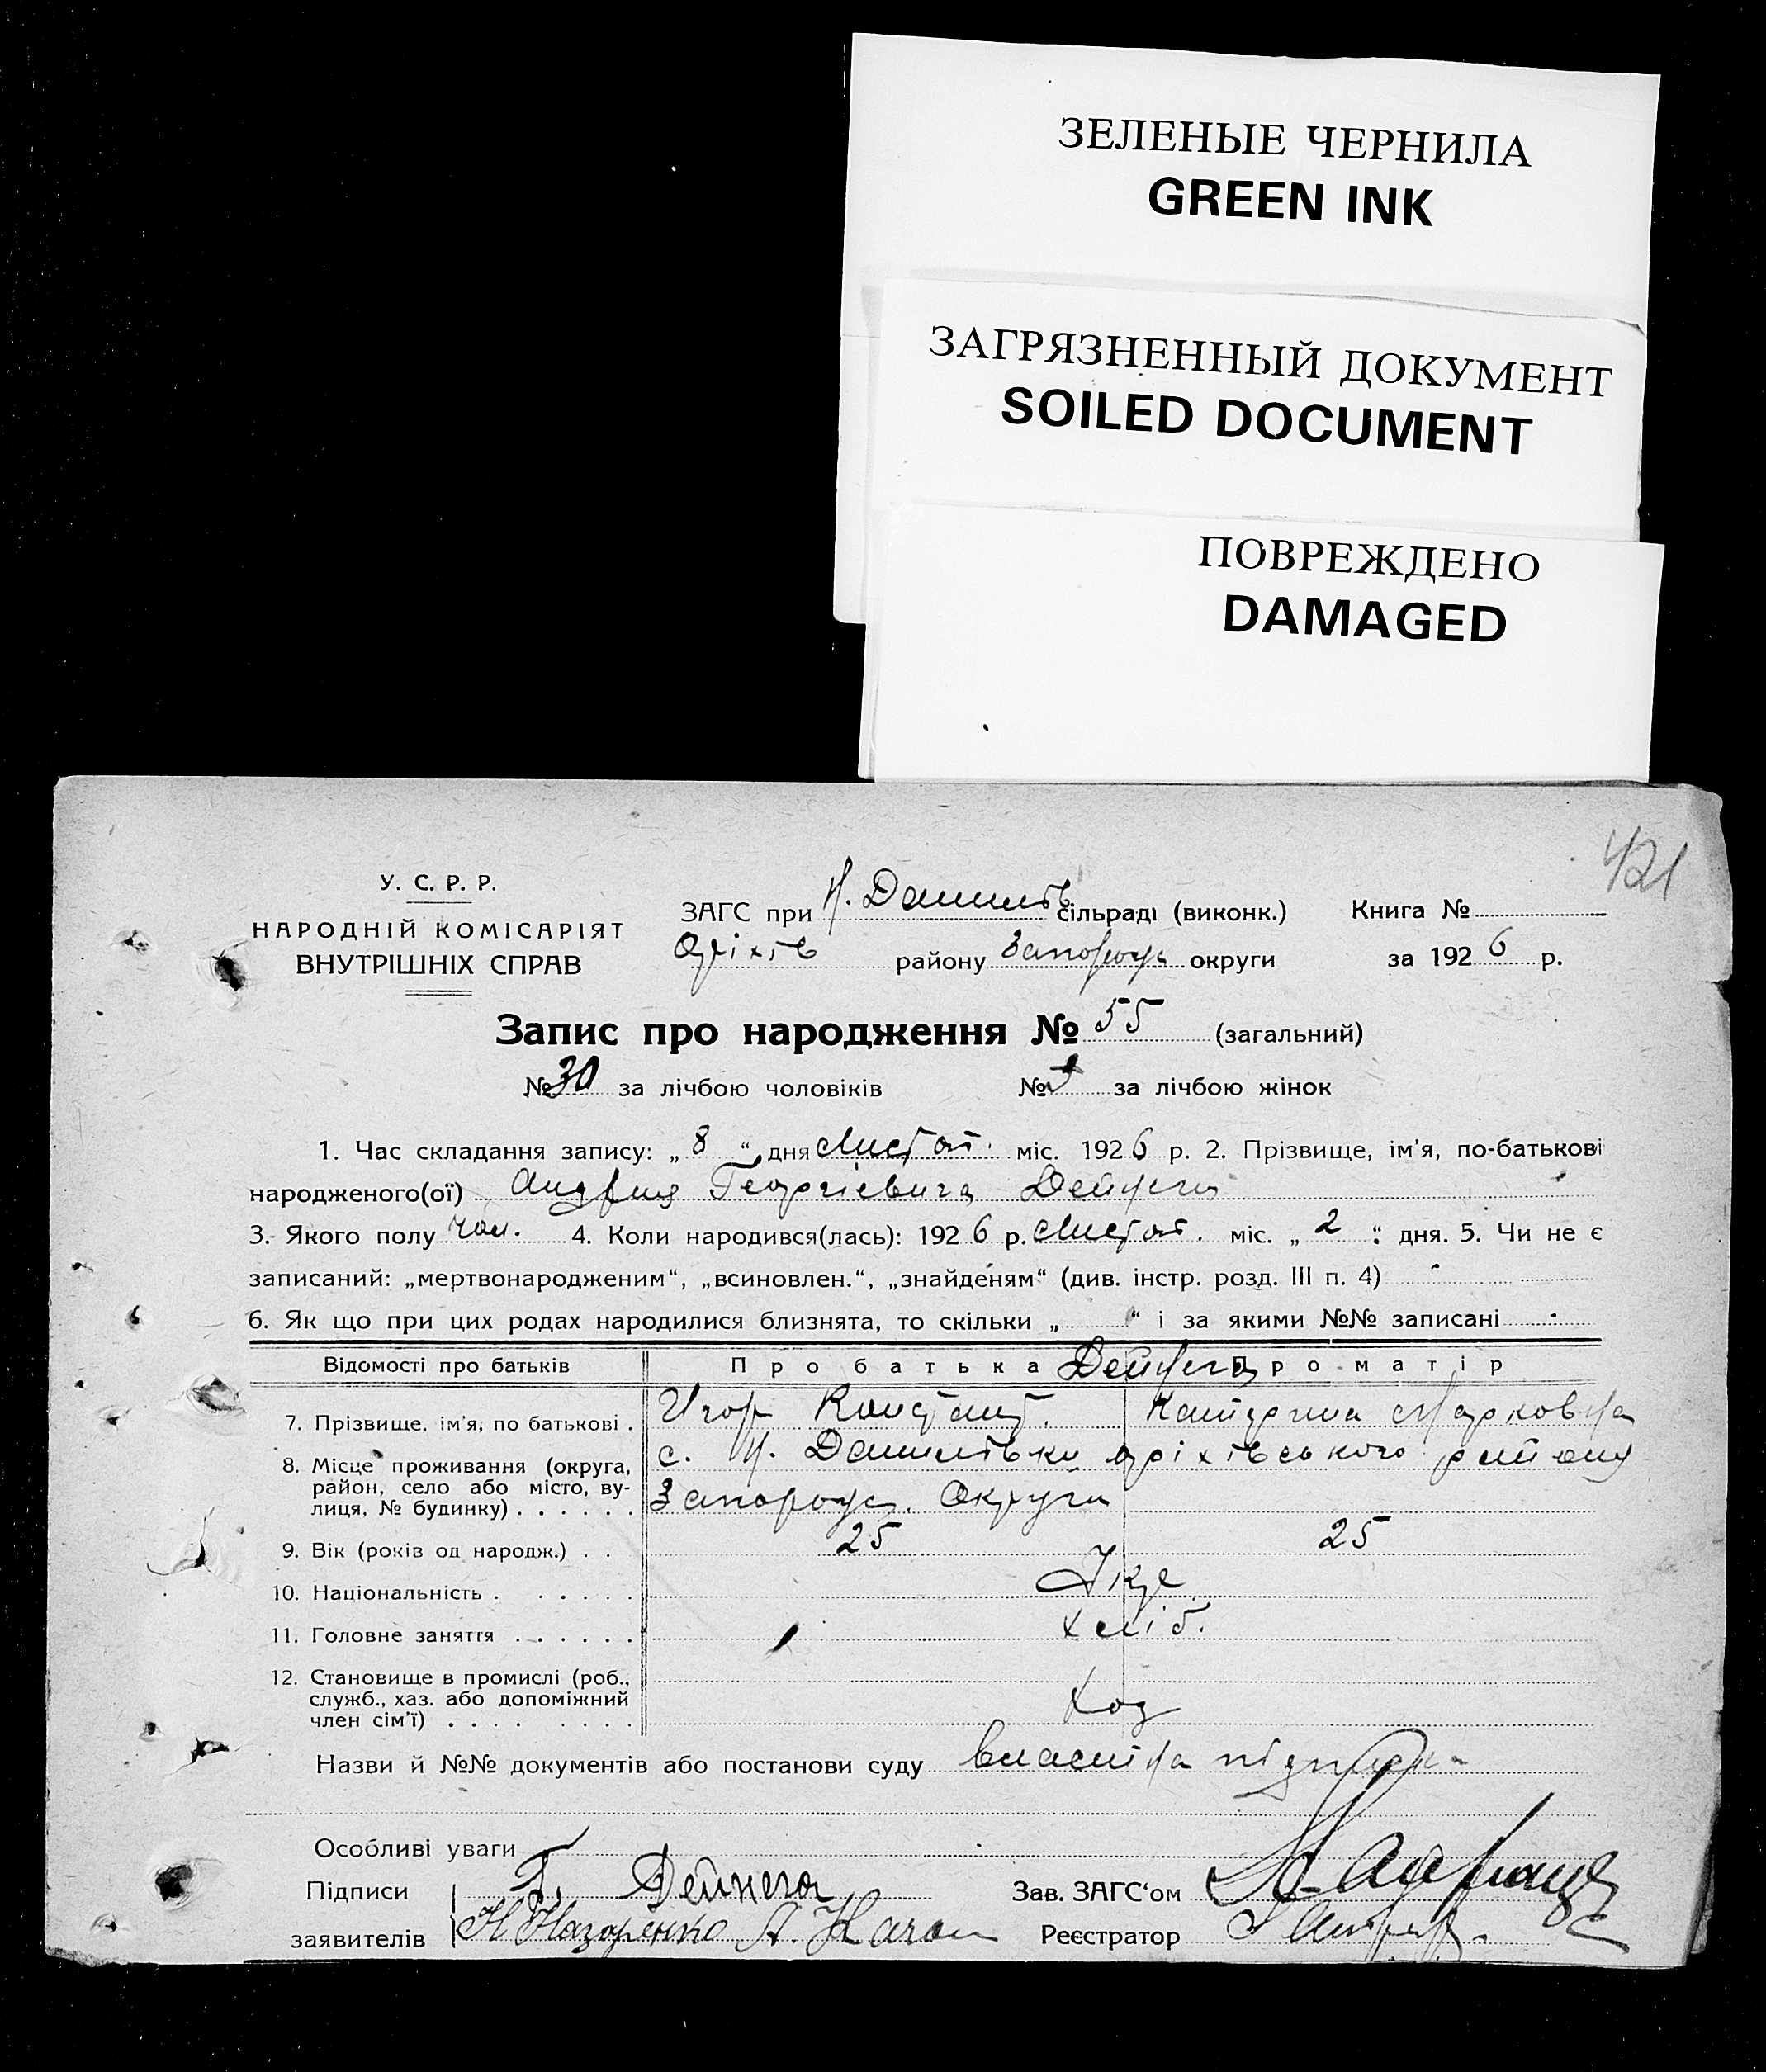 ЗЕЛЕНЫЕ ЧЕРНИЛА
GREEN INK
ЗАГРЯЗНЕННЫЙ ДОКУМЕНТ
SOILED DOCUMENT
ПОВРЕЖДЕНО
DAMAGED
421
У. С. Р. Р.
НАРОДНІЙ КОМІСАРІЯТ
ВНУТРІШНІХ СПРАВ
ЗАГС при Н. Данилів сільраді (виконк.) Книга №
Оріхів району Запорож округи за 1926 р.
Запис про народження № 55 (загальний)
№ 30 за лічбою чоловіків № за лічбою жінок
1. Час складання запису: „8“ дня Листоп. міс. 1926 р. 2. Прізвище, ім'я, по-батькові
народженого(ої) Андрия Георгієвича Дейнега
3. Якого полу чол. 4. Коли народився(лась): 1926 р. Листоп. міс. „2“ дня. 5. Чи не є
записаний: „мертвонародженим“, „всиновлен.“, „знайденям“ (див. інстр. розд. III п. 4) -
6. Як що при цих родах народилися близнята, то скільки „ “ і за якими №№ записані -
Відомості про батьків Про батька Дейнега Про матір
7. Прізвище, ім'я, по батькові . Игор Констант. Катерина Марковна
8. Місце проживання (округа, с. Н. Данилівки оріхівського району
район, село або місто, вулиця, № будинку) . . . . . . Запорож. Округи
9. Вік (років од народж.) . . 25 25
10. Національність . . . . . . Укр
11. Головне заняття . . . . . . хліб.
12. Становище в промислі (роб.,
служб., хаз. або допоміжний
член сім'ї) . . . . . . . . Хоз
Назви й №№ документів або постанови суду власна підписка
Особливі уваги
Підписи Г. Дейнега Зав. ЗАГС'ом
заявителів Н Назаренко А. Качан Реєстратор